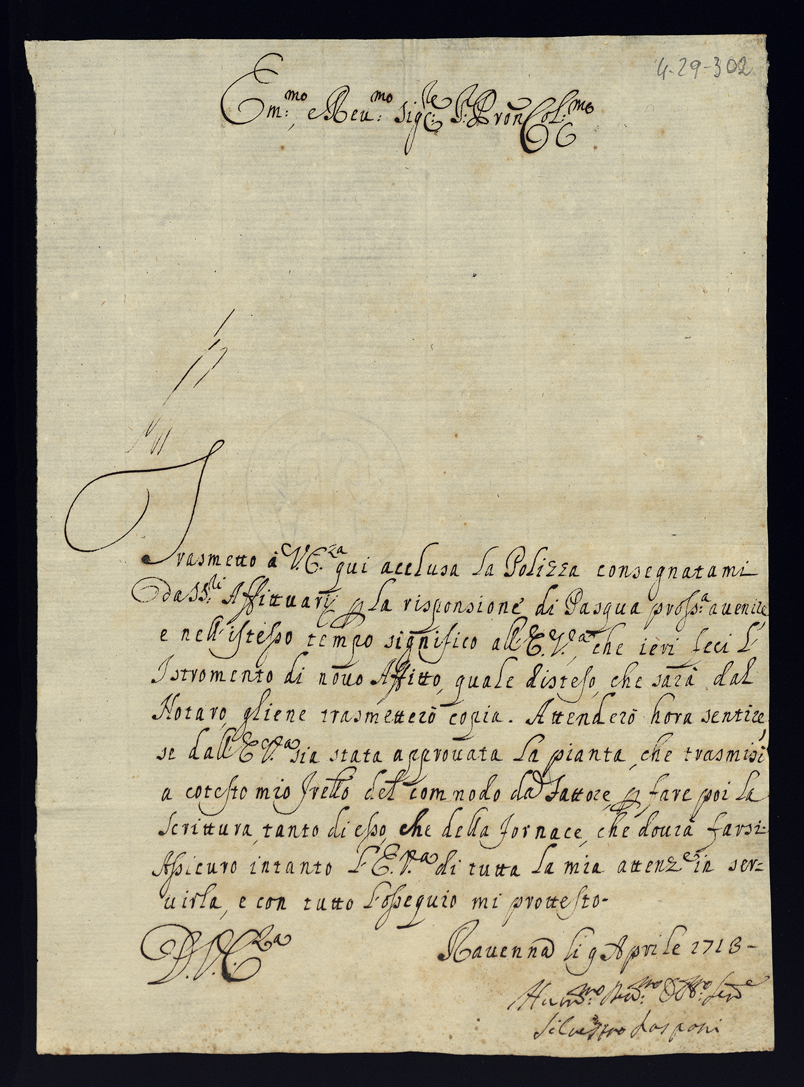 4-29-302
Em:mo, e Reu:mo Sig:re P:ron Col:mo
Trasmetto à V.E.za qui acclusa la Polizza consegnatami
da SS:ti Affittuarij p la risponsione di Pasqua pross:a auenire,
e nell'istesso tempo significo all'E.V.a, che ieri feci l'
Istromento di nouo Affitto, quale disteso, che sarà dal
Notaro, gliene trasmetterò copia. Attenderò hora sentire,
se dall'E.V.a sia stata approuata la pianta, che trasmisi
a cotesto mio Frello del commodo da Fattore, p fare poi la
scrittura, tanto di esso, che della Fornace, che dourà farsi.
Assicuro intanto l'E.V.a di tutta la mia attenz.e in ser=
uirla, e con tutto l'ossequio mi prottesto-
D.V.E.za
Rauenna li 9 Aprile 1718-
Hum:mo Deu:mo Obb:mo Serre
Siluestro Rasponi